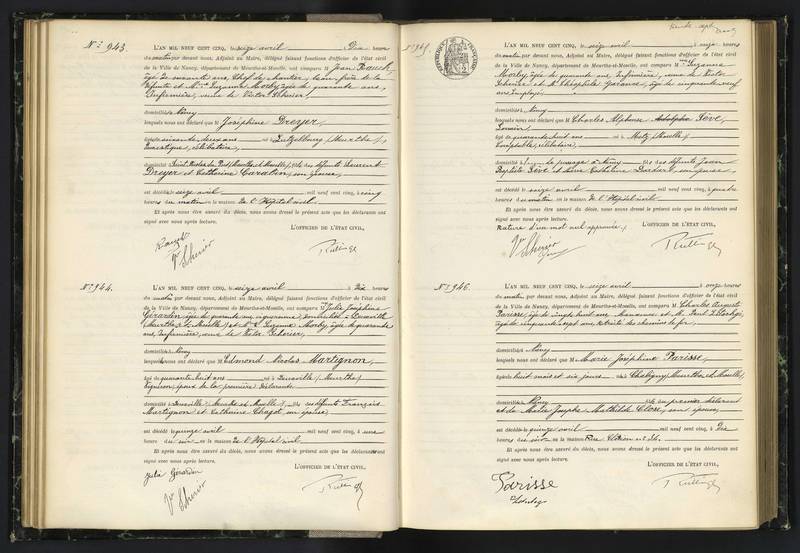 N° 943.
L'AN MIL NEUF CENT CINQ, le seize avril Dix heures
du matin par devant nous, Adjoint au Maire, délégué faisant fonctions d'officier de l'état civil
de la Ville de Nancy, département de Meurthe-et-Moselle, ont comparu M Jean
âgé de soixante ans, Chef de chantier, beau-frère de la
défunte et Mme Suzanne Morby, âgée de quarante ans,
Infirmière, veuve de Victor Scherier,
domiciliés à Nancy
lesquels nous ont déclaré que M Joséphine Dreyer,
âgée de soixante deux ans né à Lutzelbourg (Meurthe),
Domestique, célibataire,
domicilié à Saint Nicolas du Port (Meurthe et Moselle), fille des défunts Laurent
Dreyer et Catherine Carabin, son épouse,
est décédée le seize avril mil neuf cent cinq, à cinq
heures du matin en la maison de l'Hôpital civil
Et après nous être assuré du décès, nous avons dressé le présent acte que les déclarants ont
signé avec nous après lecture.
L'OFFICIER DE L'ÉTAT CIVIL,
Vve Scherier
N° 944.
L'AN MIL NEUF CENT CINQ, le seize avril à Dix heures
du matin par devant nous, Adjoint au Maire, délégué faisant fonctions d'officier de l'état civil
de la Ville de Nancy, département de Meurthe-et-Moselle, ont comparu Mme Julie Joséphine
Gérardin, âgée de quarante ans, vigneronne, domiciliée à
(Meurthe et Moselle) et Mme Suzanne Morby, âgée de quarante
ans, Infirmière, veuve de Victor Scherier,
domiciliés à Nancy
lesquelles nous ont déclaré que M Edmond Nicolas Martignon,
âgé de quarante huit ans né à (Meurthe)
Vigneron, époux de la première déclarante
domicilié à (Meurthe et Moselle), fils des défunts François
Martignon et Catherine Chagot son épouse,
est décédé le quinze avril mil neuf cent cinq, à une
heure du soir en la maison de l'Hôpital civil
Et après nous être assuré du décès, nous avons dressé le présent acte que les déclarants ont
signé avec nous après lecture.
L'OFFICIER DE L'ÉTAT CIVIL,
Julie Gérardin
Vve Scherier
N° 945.
RÉPUBLIQUE FRANÇAISE
L'AN MIL NEUF CENT CINQ, le seize avril à onze heures
du matin par devant nous, Adjoint au Maire, délégué faisant fonctions d'officier de l'état civil
de la Ville de Nancy, département de Meurthe-et-Moselle, ont comparu Mme Suzanne
Morby, âgée de quarante ans, Infirmière, veuve de Victor
Scherier et M. Théophile, âgé de cinquante neuf
ans, Employé,
domiciliés à Nancy
lesquels nous ont déclaré que M Charles Alphonse Adolphe Fève,
âgé de quarante huit ans né à Metz (Moselle)
Comptable, célibataire,
domicilié à de passage à Nancy fils des défunts Jean
Baptiste Fève et Anne Catherine son épouse
est décédé le seize avril mil neuf cent cinq, à quatre
heures du matin en la maison de l'Hôpital civil
Et après nous être assuré du décès, nous avons dressé le présent acte que les déclarants ont
signé avec nous après lecture.
Rature d'un mot nul approuvée
L'OFFICIER DE L'ÉTAT CIVIL,
Vve Scherier
N° 946.
L'AN MIL NEUF CENT CINQ, le seize avril à onze heures
du matin par devant nous, Adjoint au Maire, délégué faisant fonctions d'officier de l'état civil
de la Ville de Nancy, département de Meurthe-et-Moselle, ont comparu M. Charles Auguste
Parisse, âgé de vingt huit ans, Manœuvre et M. Paul
âgé de cinquante sept ans, retraité du chemin de fer,
domiciliés à Nancy
lesquels nous ont déclaré que M Marie Joséphine Parisse,
âgée huit mois et six jours née à Chaligny (Meurthe et Moselle),
domicilié à Nancy fille du premier déclarant
et de Marie Josèphe Mathilde Close, son épouse,
est décédée le quinze avril mil neuf cent cinq, à Dix
heures du soir en la maison Rue
Et après nous être assuré du décès, nous avons dressé le présent acte que les déclarants ont
signé avec nous après lecture.
L'OFFICIER DE L'ÉTAT CIVIL,
Parisse